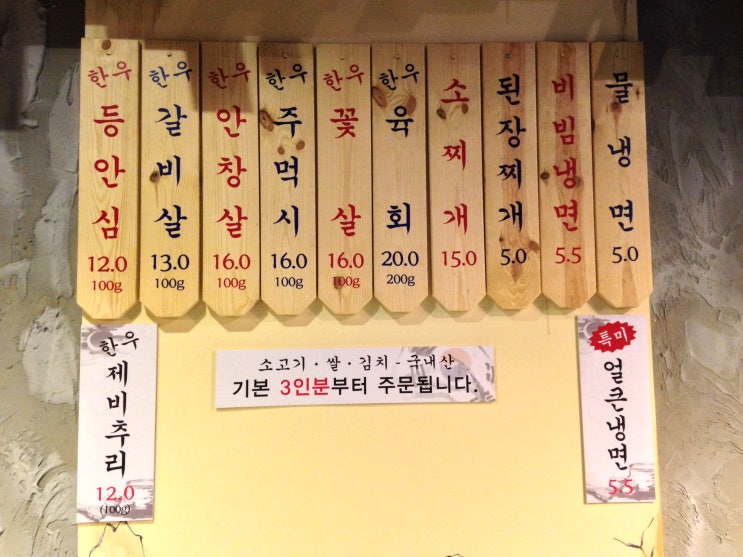 한우
등안심
12.0
100g
한우
갈비살
13.0
100g
한우
안창살
16.0
100g
한우
주먹시
16.0
100g
한우
꽃살
16.0
100g
한우
육회
20.0
200g
소찌개
15.0
된장찌개
5.0
비빔냉면
5.5
물냉면
5.0
한우
제비추리
12.0
(100g)
소고기 · 쌀 · 김치 - 국내산
기본 3인분부터 주문됩니다.
특미
얼큰냉면
5.5